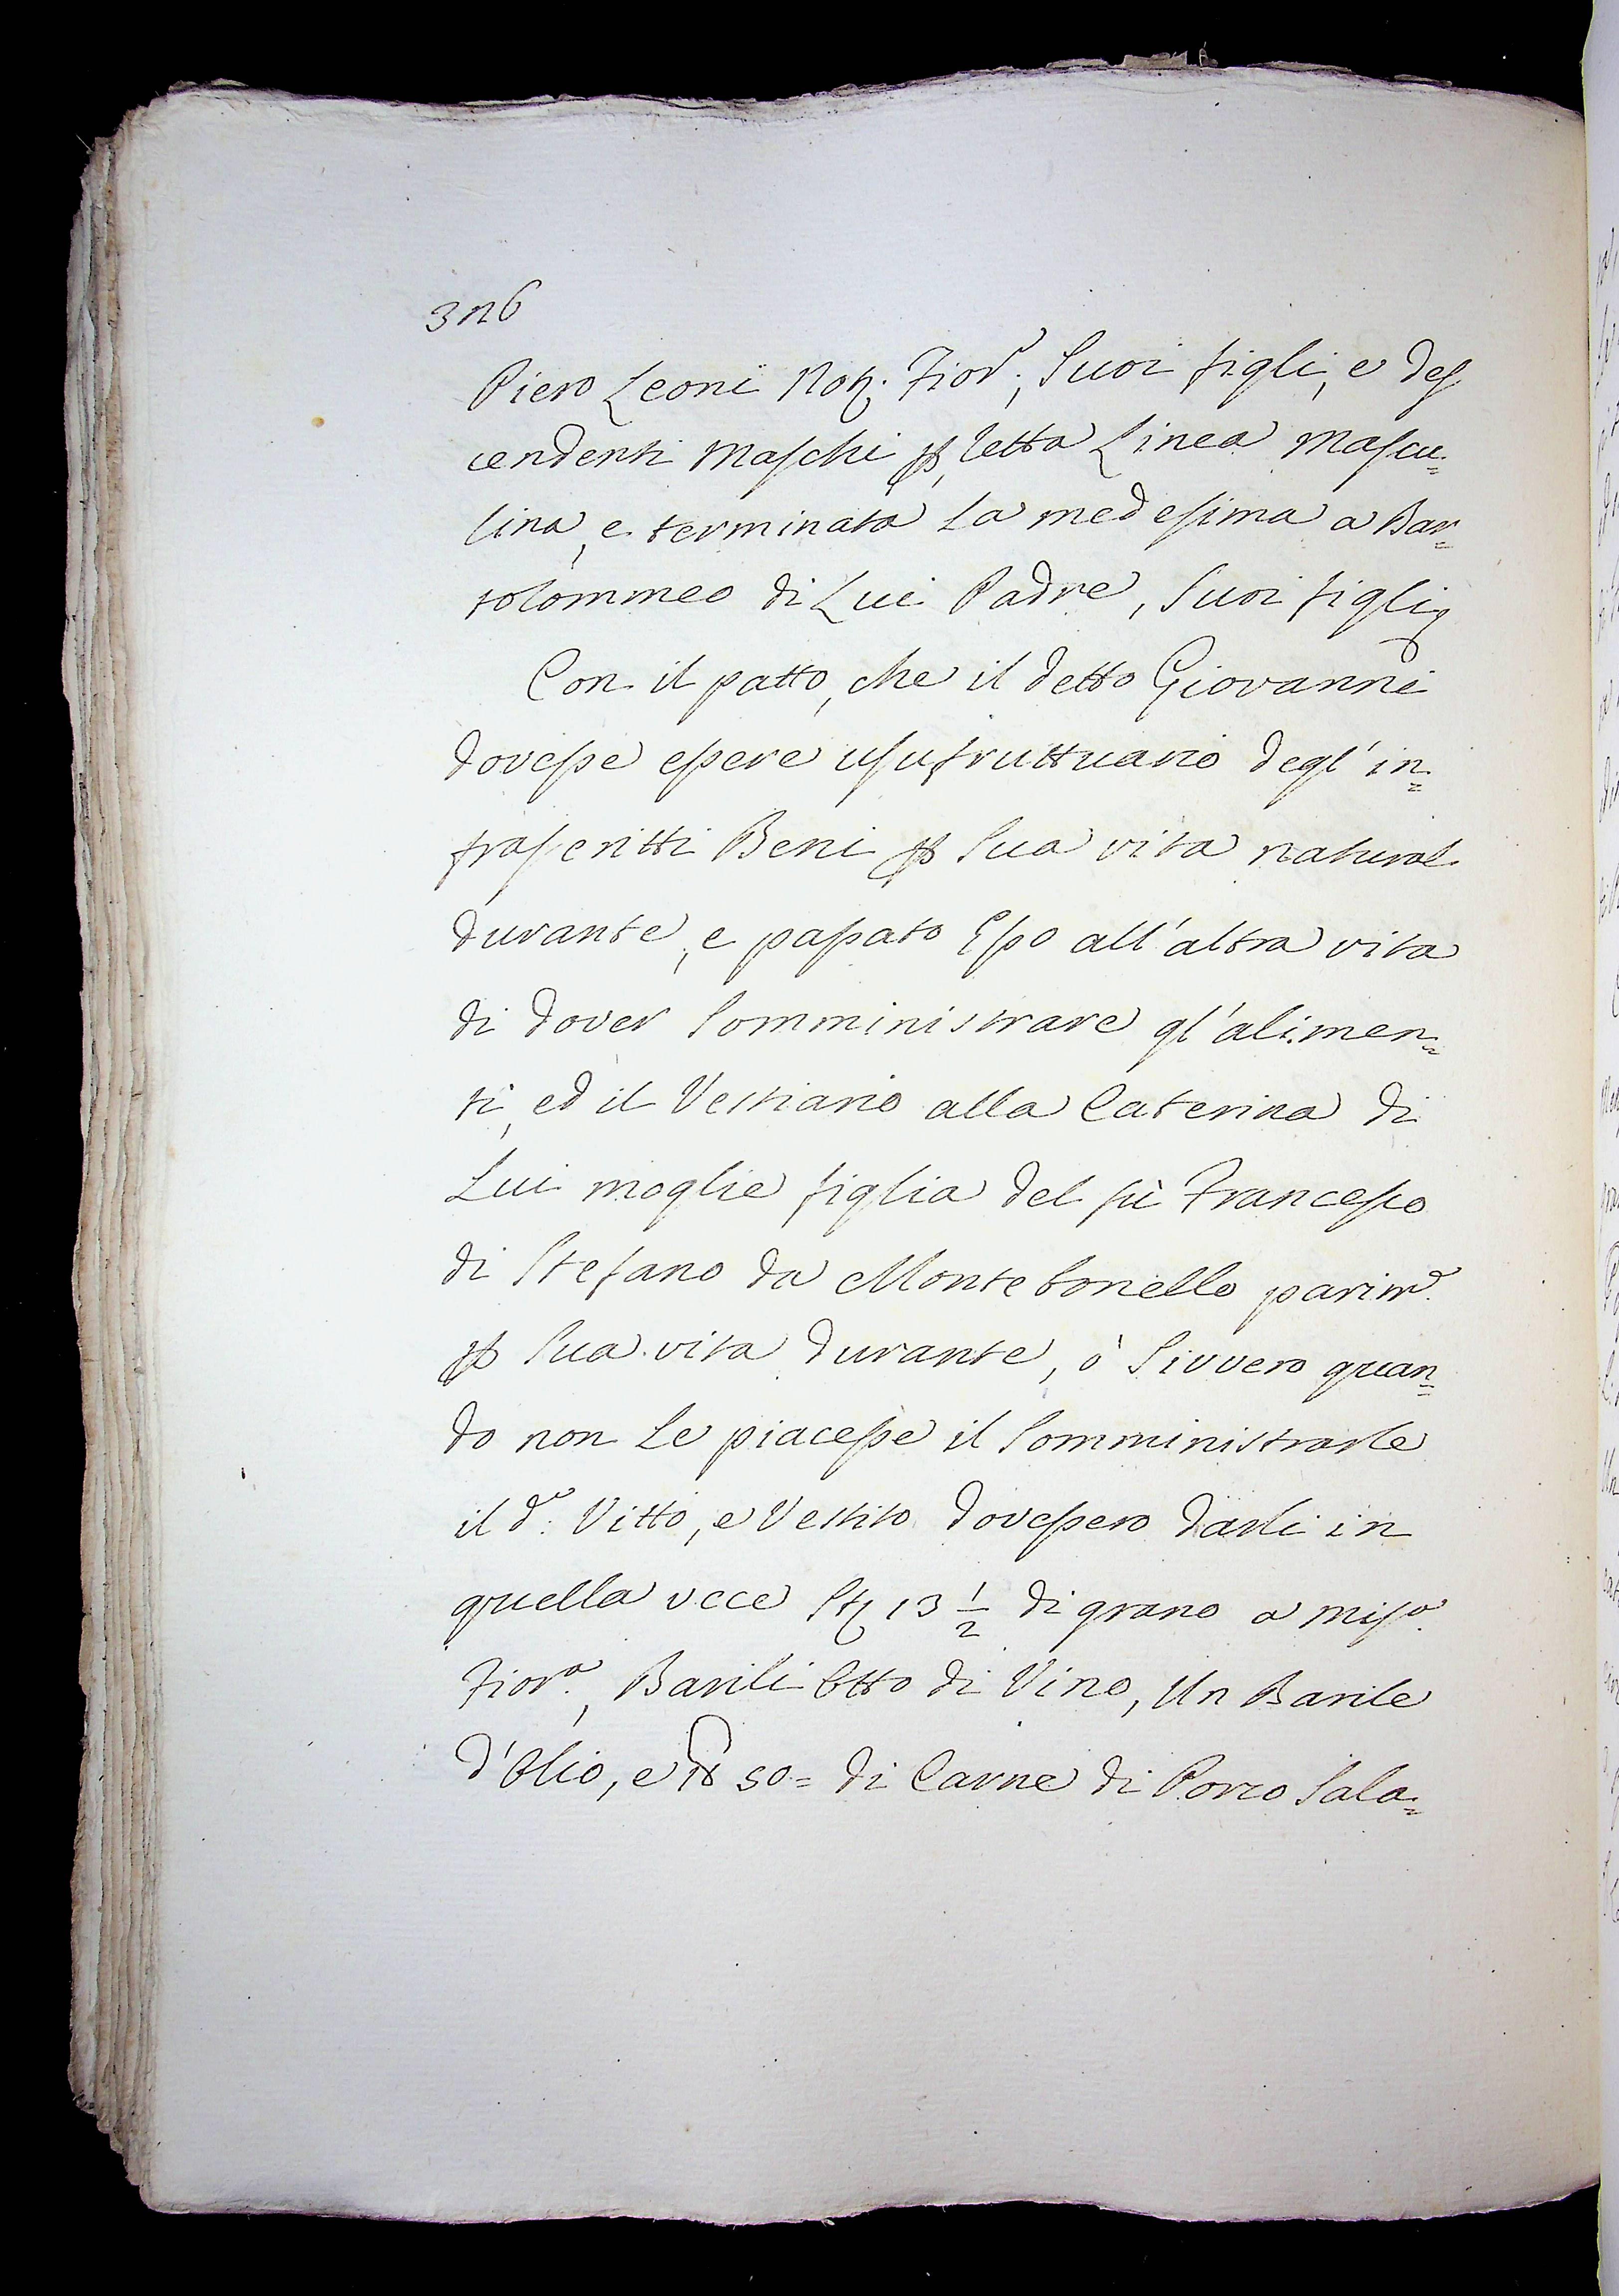 326
Piero Leoni Not. Fior.º, Suoi figli, e des
cendenti Maschi p retta Linea Mascu=
lina, e terminata La medesima a Bar=
tolommeo di Lui Padre, Suoi figli
Con il patto, che il detto Giovanni
dovesse essere usufruttuario degl'in=
frascritti Beni p Sua vita natural
durante, e passato Esso all'altra vita
di dover Somministrare gl'alimen=
ti, ed il Vestiario alla Caterina di
Lui moglie figlia del fù Francesco
di Stefano da Montebonello parim.e
p Sua vita durante, ò Sivvero quan=
do non Le piacesse il Somministrarle
il d.º Vitto, e Vestito dovessero darli in
quella vece St. 13 1/2 di grano a mis.a
Fior.a, Barili Otto di Vino, Un Barile
d'Olio, e ℔ 50= di Carne di Porco Sala=